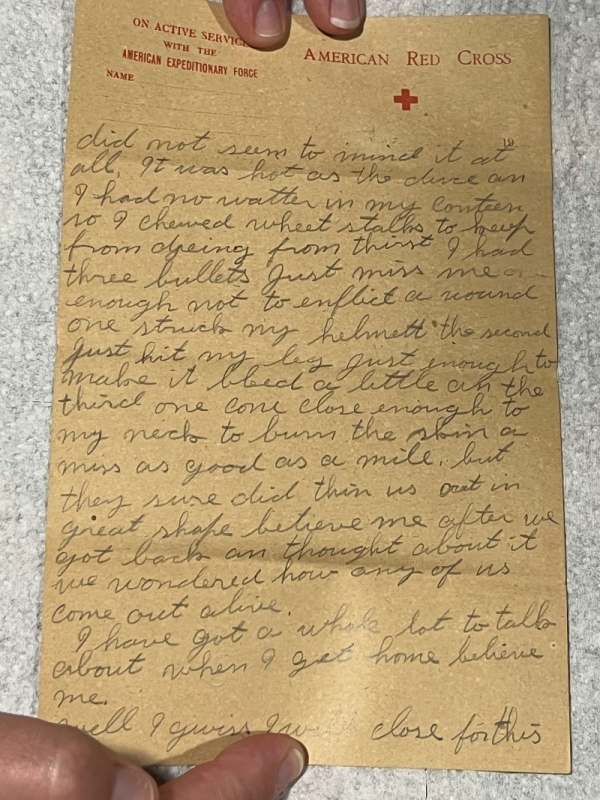 ON ACTIVE SERVICE
WITH THE
AMERICAN EXPEDITIONARY FORCE
NAME
AMERICAN RED CROSS
19
did not seem to mind it at
all. It was hot as the duce an
I had no watter in my conteen
so I chewed wheet stalks to keep
from dyeing from thirst I had
three bullets Just miss me
enough not to enflict a wound
one struck my helmett the second
Just hit my leg Just enough to
make it bleed a little an the
third one come close enough to
my neck to burn the skin a
miss as good as a mile. but
they sure did thin us out in
great shape believe me after we
got back an thought about it
we wondered how any of us
come out alive.
I have got a whole lot to talk
about when I get home believe
me.
well I guiss I will close for this